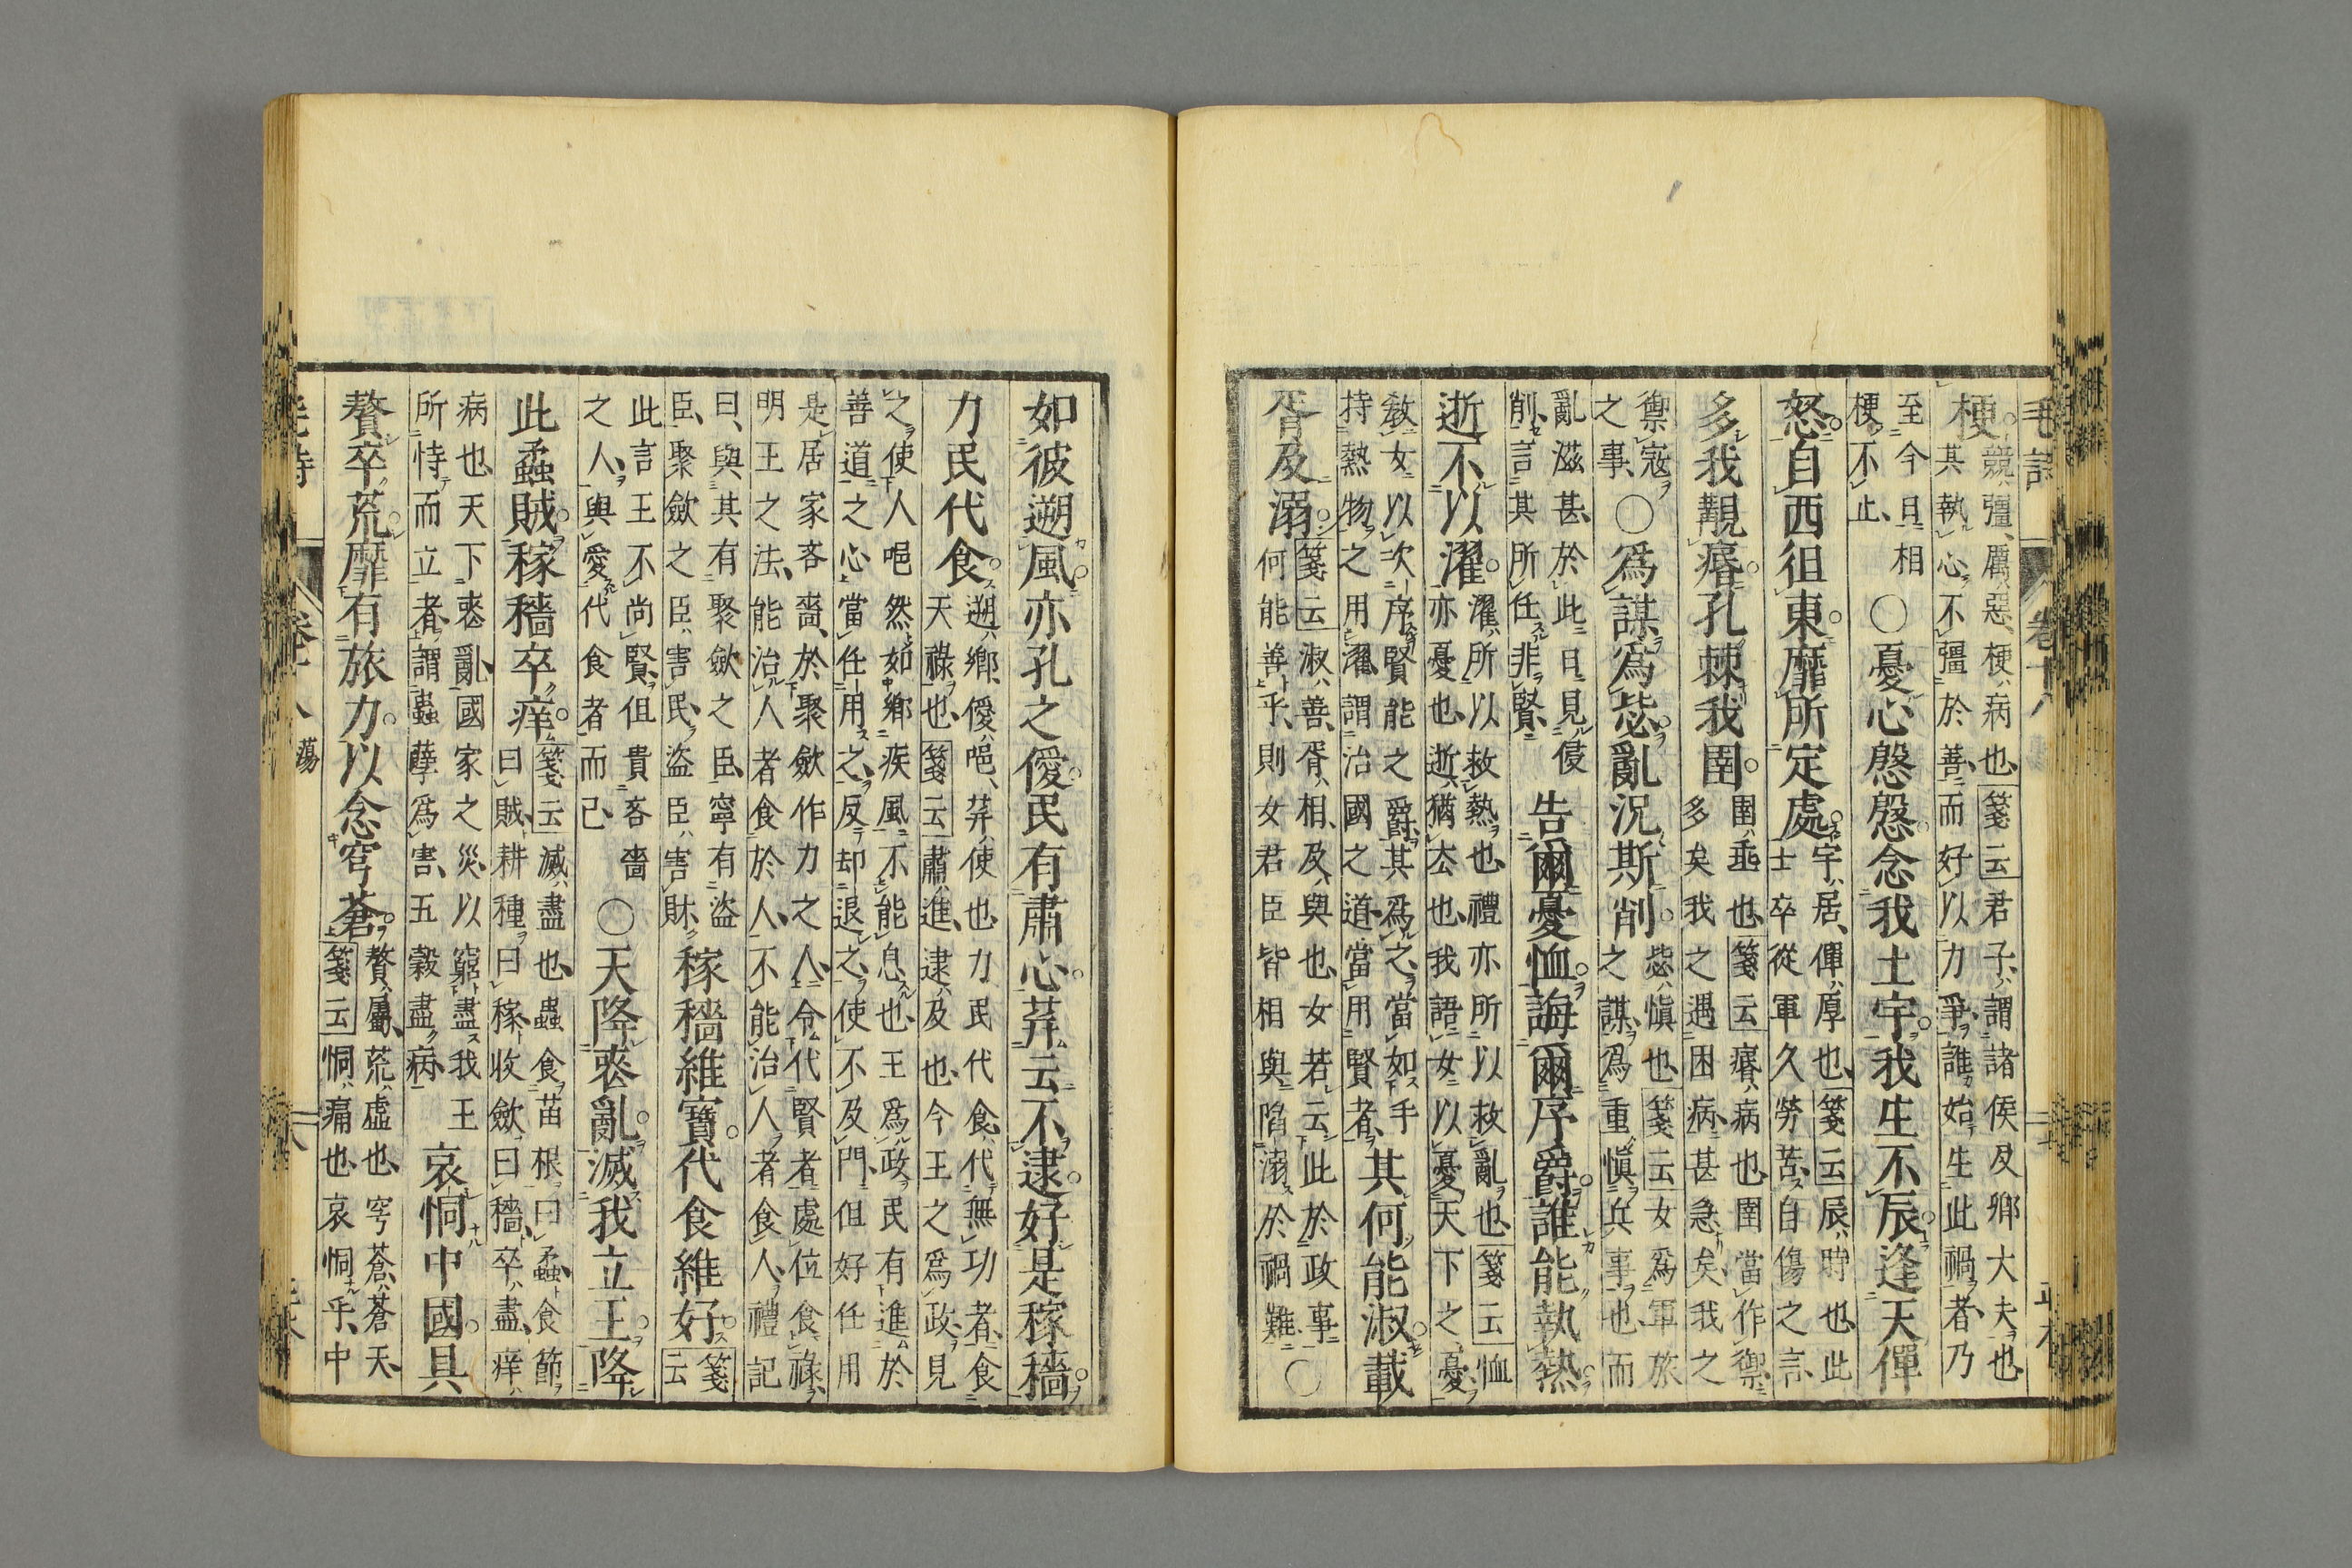 毛詩 卷十八 二七
梗
競彊、厲惡、梗病也、箋云君子、謂諸侯及卿大夫也
其執心不彊於善、而好以力爭、誰始生此禍者、乃
至今日相
梗不止、
○憂心慇慇念我土宇我生不辰逢天僤
怒自西徂東靡所定處
宇居、僤厚也、箋云辰時也、此
士卒從軍久勞苦自傷之言、
多我覯痻孔棘我圉
圉垂也、箋云痻病也圉當作禦
多矣我之遇困病、甚急矣、我之
禦寇
之事、
○爲謀爲毖亂況斯削
毖愼也、箋云女爲軍旅
之謀、爲重愼兵事也、而
亂滋甚、於此日見侵
削、言其所任非賢、
告爾憂恤誨爾序爵誰能執熱
逝不以濯
濯所以救熱也、禮亦所以救亂也、箋云恤
亦憂也、逝猶去也、我語女以憂天下之憂、
敎女以次序賢能之爵、其爲之、當如手
持熱物之用濯、謂治國之道、當用賢者、
其何能淑載
胥及溺
箋云淑善、胥相、及與也、女若云此於政事
何能善乎、則女君臣皆相與陷溺於禍難、
○
如彼遡風亦孔之僾民有肅心荓云不逮好是稼穡
力民代食
遡鄉、僾唈、荓使也、力民代食、代無功者、食
天祿也、箋云肅進、逮及也、今王之爲政、見
之使人唈然、如鄉疾風不能息也、王爲政、民有進於
善道之心、當任用之、反却退之、使不及門、但好任用
是居家吝嗇、於聚歛作力之人、令代賢者處位食祿、
明王之法、能治人者食於人、不能治人者食人、禮記
曰、與其有聚歛之臣、寧有盜
臣、聚歛之臣害民、盜臣害財、
稼穡維寶代食維好
箋
云
此言王不尚賢、但貴吝嗇
之人、與愛代食者而己、
○天降喪亂滅我立王降
此蟊賊稼穡卒痒
箋云滅盡也、蟲食苗根曰蟊、食節
曰賊、耕種曰稼、收歛曰穡、卒盡、痒
病也、天下喪亂、國家之災、以窮盡我王
所恃而立者、謂蟲孽爲害、五穀盡病、
哀恫中國具
贅卒荒靡有旅力以念穹蒼
贅屬、荒虛也、穹蒼蒼天、
箋云恫痛也、哀恫乎、中
毛詩 卷十八 蕩 二八